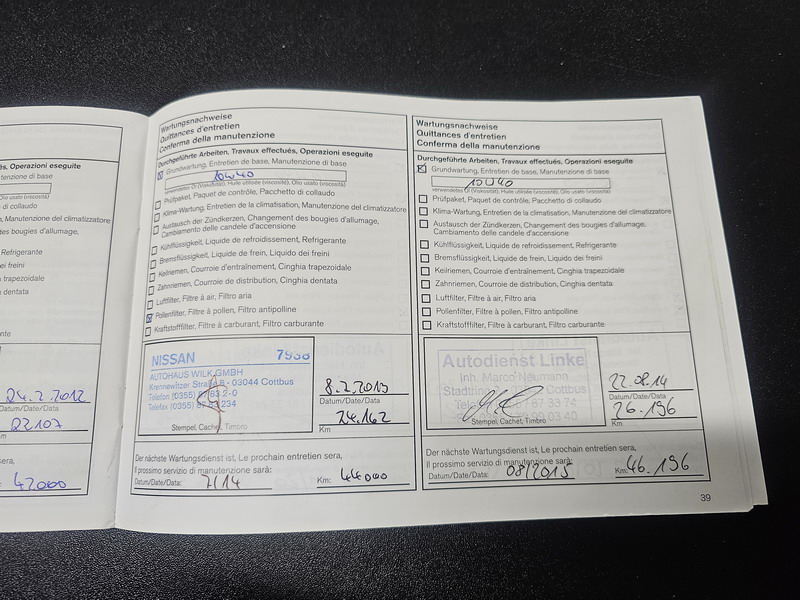 s, Operazioni eseguite
tenzione di base
Olio usato (viscosità)
di collaudo
Manutenzione del climatizzatore
d'allumage,
Refrigerante
ei freini
trapezoidale
dentata
ante
24.2.2012
Datum/Date/Data
22107
Km
sera,
42000
Wartungsnachweise
Quittances d'entretien
Conferma della manutenzione
Durchgeführte Arbeiten, Travaux effectués, Operazioni eseguite
Grundwartung, Entretien de base, Manutenzione di base
10W40
verwendetes Öl (Viskosität), Huile utilisée (viscosité), Olio usato (viscosità)
Prüfpaket, Paquet de contrôle, Pacchetto di collaudo
Klima-Wartung, Entretien de la climatisation, Manutenzione del climatizzatore
Austausch der Zündkerzen, Changement des bougies d'allumage,
Cambiamento delle candele d'accensione
Kühlflüssigkeit, Liquide de refroidissement, Refrigerante
Bremsflüssigkeit, Liquide de frein, Liquido dei freini
Keilriemen, Courroie d'entraînement, Cinghia trapezoidale
Zahnriemen, Courroie de distribution, Cinghia dentata
Luftfilter, Filtre à air, Filtro aria
Pollenfilter, Filtre à pollen, Filtro antipolline
Kraftstofffilter, Filtre à carburant, Filtro carburante
NISSAN 7938
AUTOHAUS WILK GMBH
Krennewitzer Straße 8 - 03044 Cottbus
Telefon (0355) 87 83 2-0
Telefax (0355) 87 83 234
Stempel, Cachet, Timbro
8.2.2013
Datum/Date/Data
24.162
Km
Der nächste Wartungsdienst ist, Le prochain entretien sera,
Il prossimo servizio di manutenzione sarà:
Datum/Date/Data: 2/14 Km: 44000
Wartungsnachweise
Quittances d'entretien
Conferma della manutenzione
Durchgeführte Arbeiten, Travaux effectués, Operazioni eseguite
Grundwartung, Entretien de base, Manutenzione di base
10W40
verwendetes Öl (Viskosität), Huile utilisée (viscosité), Olio usato (viscosità)
Prüfpaket, Paquet de contrôle, Pacchetto di collaudo
Klima-Wartung, Entretien de la climatisation, Manutenzione del climatizzatore
Austausch der Zündkerzen, Changement des bougies d'allumage,
Cambiamento delle candele d'accensione
Kühlflüssigkeit, Liquide de refroidissement, Refrigerante
Bremsflüssigkeit, Liquide de frein, Liquido dei freini
Keilriemen, Courroie d'entraînement, Cinghia trapezoidale
Zahnriemen, Courroie de distribution, Cinghia dentata
Luftfilter, Filtre à air, Filtro aria
Pollenfilter, Filtre à pollen, Filtro antipolline
Kraftstofffilter, Filtre à carburant, Filtro carburante
Autodienst Linke
Inh. Marco Neumann
Cottbus
87 33 74
99 03 40
Stempel, Cachet, Timbro
22.08.14
Datum/Date/Data
26.196
Km
Der nächste Wartungsdienst ist, Le prochain entretien sera,
Il prossimo servizio di manutenzione sarà:
Datum/Date/Data: 08/2015 Km: 46.196
39